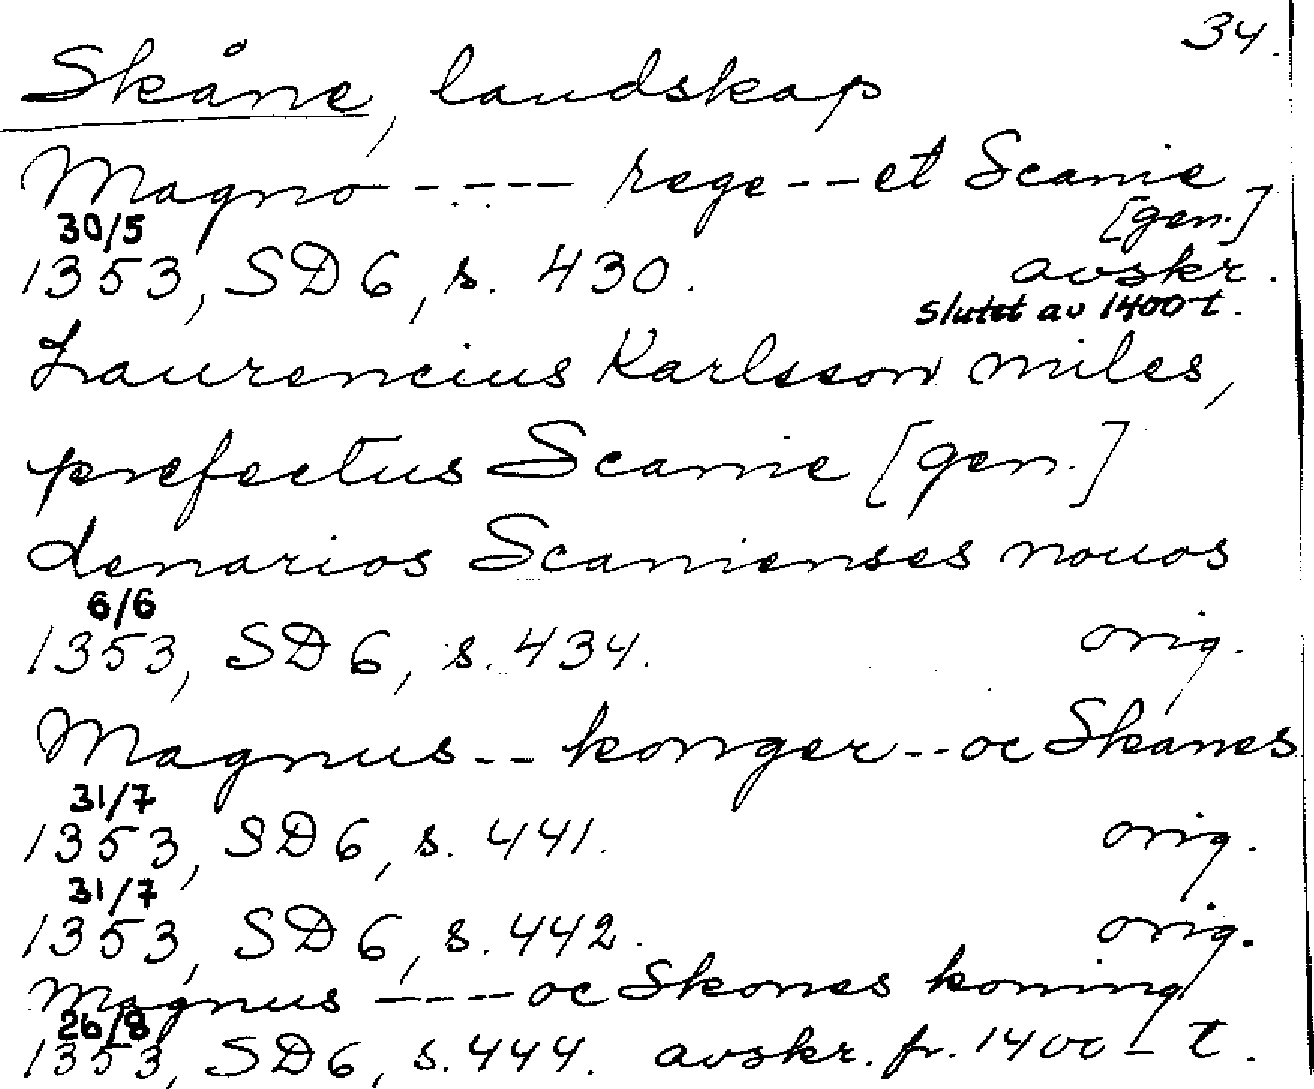 34.
Skåne, landskap
Magno ----- rege -- et Scanie
[gen.]
30/5
1353, SD 6, s. 430. avskr.
slutet av 1400-t.
Laurencius Karlsson miles,
prefectus Scanie [gen.]
denarios Scanienses nouos
6/6
1353, SD 6, s. 434. orig.
Magnus -- konger -- oc Skanes
31/7
1353, SD 6, s. 441. orig.
31/7
1353, SD 6, s. 442. orig.
Magnus ---- oc Skones koning
26/8
1353, SD 6, s. 444. avskr. fr. 1400-t.